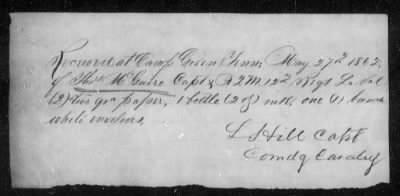 Received at Camp Green Tenn, May 27th 1862,
of Thos McGuire Capt & A.Q.M. 12th Regt La Vol
(2) two qrs paper, 1 bottle (2 oz) ink, one (1) bunch
white envelopes.
L S Hill Capt
Comdg Cavalry